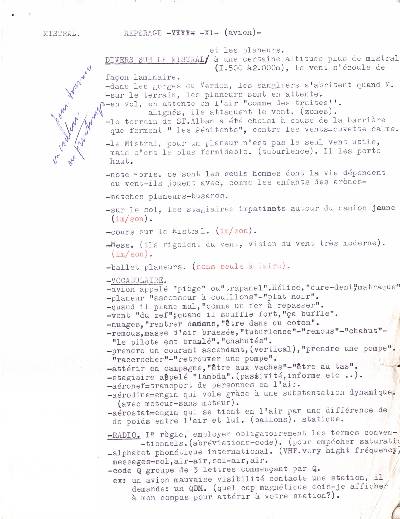 MISTRAL. REPERAGE -XI- (avion)-
et les planeurs.
DIVERS SUR LE MISTRAL/ à une certaine altitude plus de mistral
(1.500 A2.000m), le vent s'écoule de
façon laminaire.
-dans les gorges du Verdon, les sangliers s'abritent quand M.
-sur le terrain, les planeurs sont en attente.
-en vol, en attente en l'air "comme des truites".
alignés, ils attaquent le vent. (zones).
-le terrain de St.Auban a été choisi à cause de la barrière
que forment " les pénitents", contre les vents
-le Mistral, pour un planeur n'est pas le seul vent utile,
mais c'est le plus formidable. (turbulence). Il les porte
haut.
-note ce sont les seuls hommes dont la vie dépendent
du vent-ils jouent avec, comme les enfants des
-matches planeurs-
-sur le sol, les stagiaires impatients autour du camion jaune
(im/son).
-cours sur le Mistral. (im/son).
-Mess. (ils rigolent du vent, vision du vent très moderne).
(im/son).
-ballet planeurs. (sans voix à faire).
-VOCABULAIRE.
-avion appelé "piège" ou "trapanel",
-planeur "ascenseur à couillons"-"plat noir".
-quand il plane mal, "comme un fer à repasser".
-vent "du ref"; quand il souffle fort, "ça buffle".
-nuages, "rentrer dedans, "être dans du coton".
-remous, masse d'air brassée, "turbulence"-"remous"-"chahut"-
"le pilote est branlé", "chahuté".
-prendre un courant ascendant, (vertical), "prendre une pompe".
"raccrocher"-"retrouver une pompe".
-atterir en campagne, "être aux vaches"-"être au tas".
-stagiaire appelé "lambda". (passivité, informe etc ..).
-aéronef=transport de personnes en l'air.
-aérodine-engin qui vole grâce à une substentation dynamique.
(avec moteur-sans moteur).
-aérostat-engin qui se tient en l'air par une différence de
de poids entre l'air et lui. (ballons). statique.
-RADIO. Iº règle, employer obligatoirement les termes conven-
-tionnels. (abréviations-code). (pour empêcher saturati
-alphabet phonétique international. (VHF. very hight fréquency
messages-sol, air-air, sol-air, air.
-code Q groupe de 3 lettres commençant par Q.
ex: un avion mauvaise visibilité contacte une station, il
demandes un QDM. (quel cap magnétique dois-je afficher
à mon compas pour atterir à votre station?).